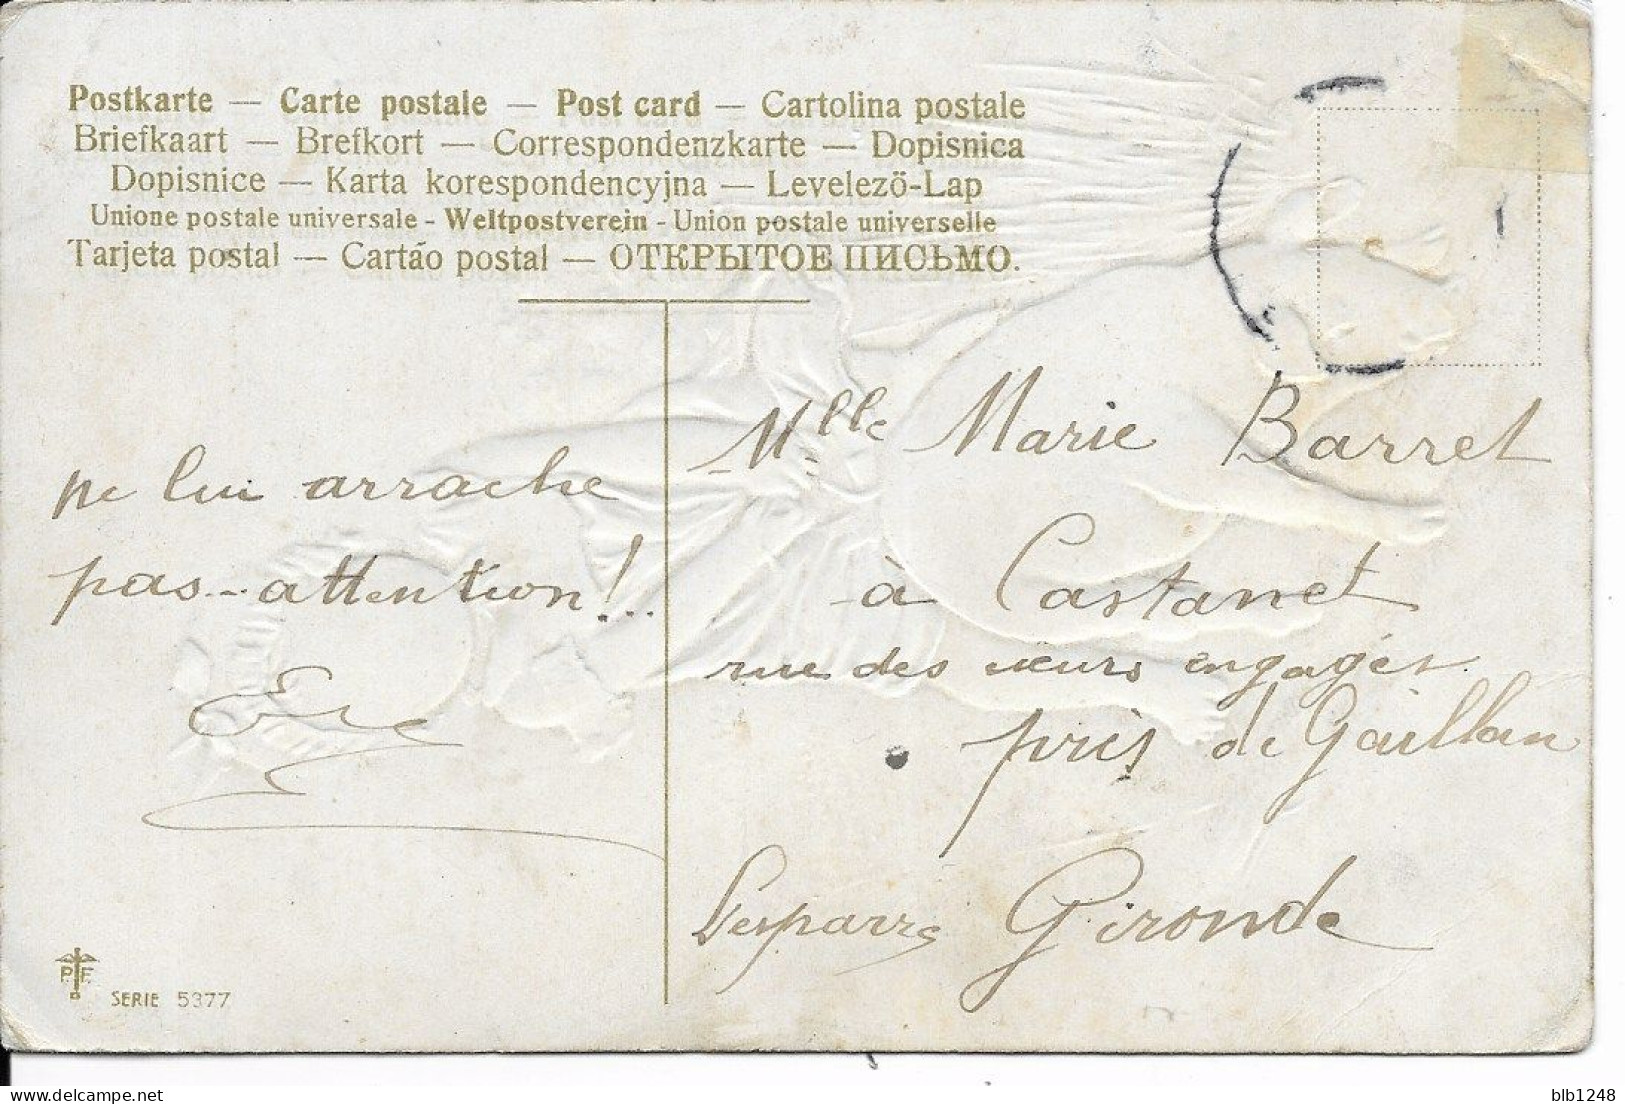 Postkarte — Carte postale — Post card — Cartolina postale
Briefkaart — Brefkort — Correspondenzkarte — Dopisnica
Dopisnice — Karta korespondencyjna — Levelező-Lap
Unione postale universale - Weltpostverein - Union postale universelle
Tarjeta postal — Cartão postal — ОТКРЫТОЕ ПИСЬМО.
ne lui arrache
pas.. attention!..
Mlle Marie Barret
à Castanet
rue des cœurs engagés
près de Gaillan
Lesparre Gironde
P. F.
SERIE 5377
blb1248